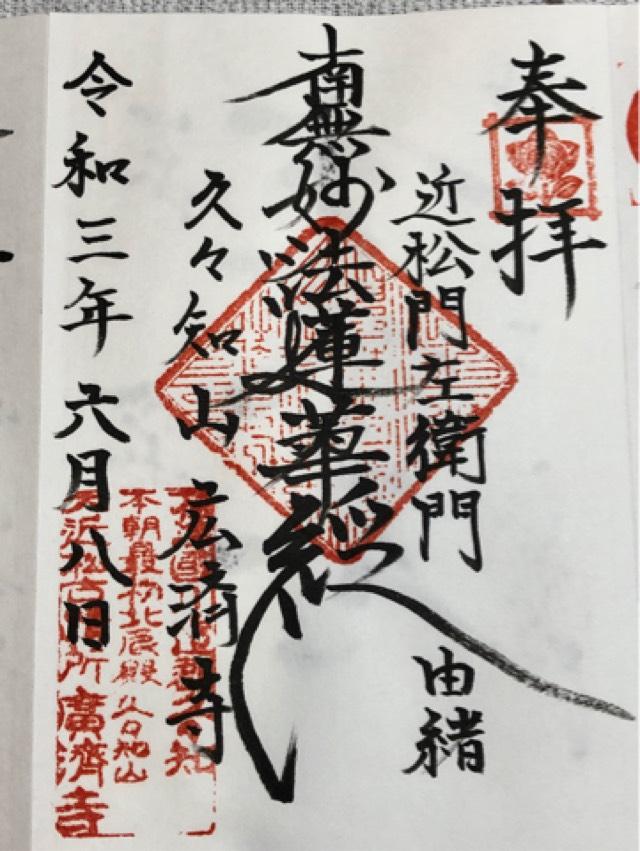 奉拝
近松門左衛門 由緒
南無妙法蓮華経
久々知山 広済寺
令和三年 六月八日
本朝最初北辰殿久々知山
廣濟寺